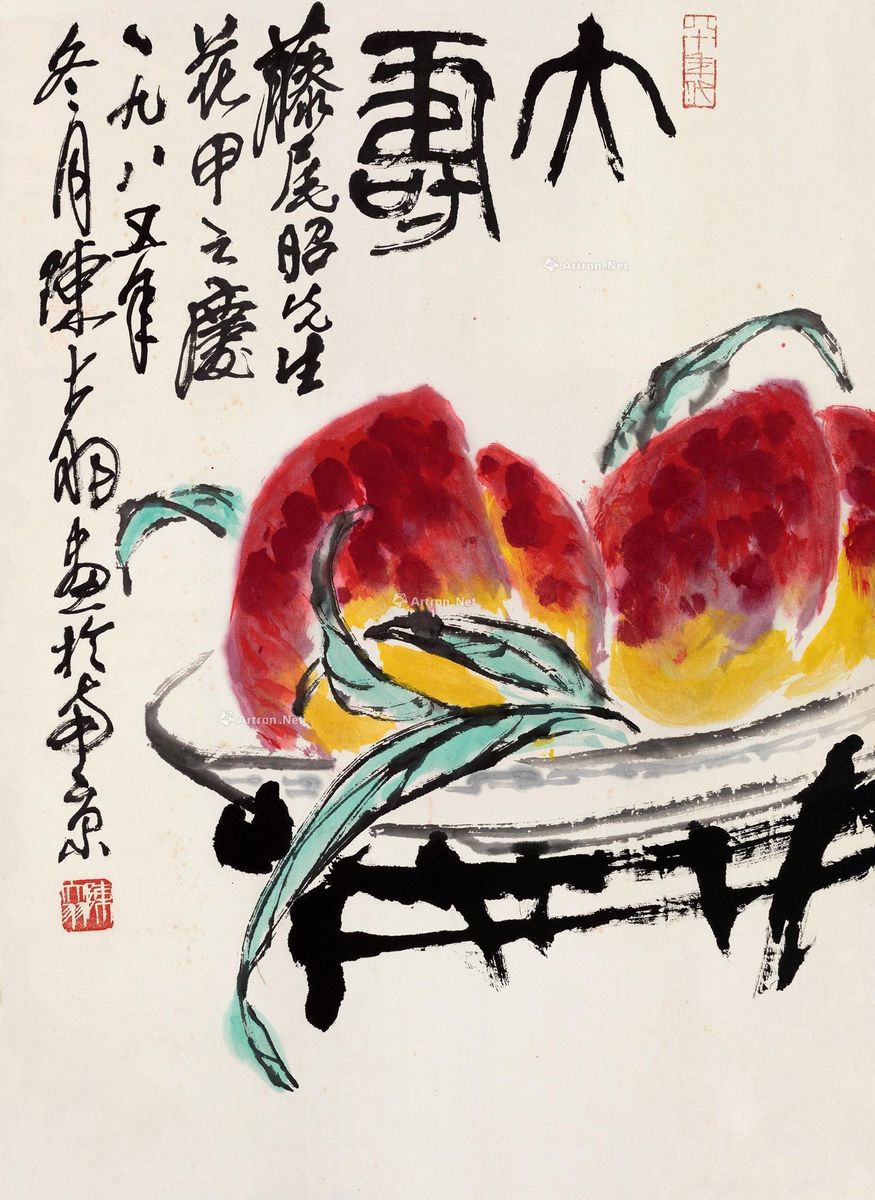 大壽
藤尾昭先生
花甲之慶
一九八五年
冬月陳大羽畫於南京
陳
大羽
Artron.Net
Artron.Net
Artron.Net